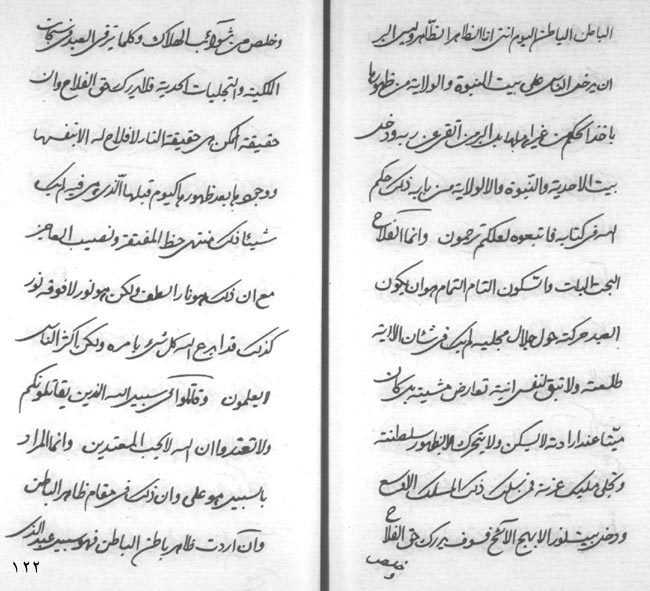 الباطن الباطن اليوم اننی انا الظاهر الظاهر و ليس البر
ان يرخی الناس علی بيت النبوة و الولاية من ظهورها
باخذ الحكم من غير اهلها بل البر من اتقی عن ربه و دخل
بيت الاحدية و النبوة و الولاية من باب ذلك حكم
الله فی كتابه فاتبعوه لعلكم ترحمون و انما الفلاح
البحت البات و السكون التام التمام هو ان يكون
العبد حركته حول جلال مجليه لم يك فی شئان الا اية
طلعته و لا تبق لنفس انيته تعارض مشيته بل كان
ميتا عند ارادته لا يسكن و لا يتحرك الا بظهور سلطنته
و تجلی مليك عزته فی ذلك المسلك
و دخل بيت لنور الابهج فسوف يدرك حق الفلاح
و خلص
و خلص من شوآئب الهلاك و كلما يرقی العبد فی سبحات
الملكية و التجليات الاحدية فلا يدرك حق الفلاح و ان
حقيقة الممكن هی حقيقة النار لا فلاح له الا بنفسها
و وجودها بعد ظهورها كيوم قبلها الذی هی فيه لم يك
شيئا ذلك منتهی حظ المفتقر و نصيب العاجز
مع ان ذلك هو نار العطف و لكن هو نور لا فوقه نور
كذلك قد ابدع الله كل شیء بامره و لكن اكثر الناس
لا يعلمون و قاتلوا فی سبيل الله الذين يقاتلونكم
و لا تعتدوا ان الله لا يحب المعتدين و انما المراد
بالسبيل هو علی و ان ذلك فی مقام ظاهر الباطن
و ان اردت ظاهر باطن الباطن فهو سبيل عبد الذی
١٢٢